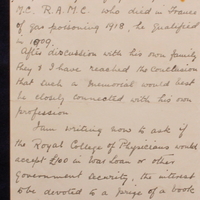 M.C. R.A.M.C. who died in France
of gas poisoning 1918, he qualified
in 1909.
After discussion with his own family
they & I have reached the conclusion
that such a Memorial would best
be closely connected with his own
profession
I am writing now to ask if
the Royal College of Physicians would
accept £400 in War Loan or other
Government security, the interest
to be devoted to a prize of a book